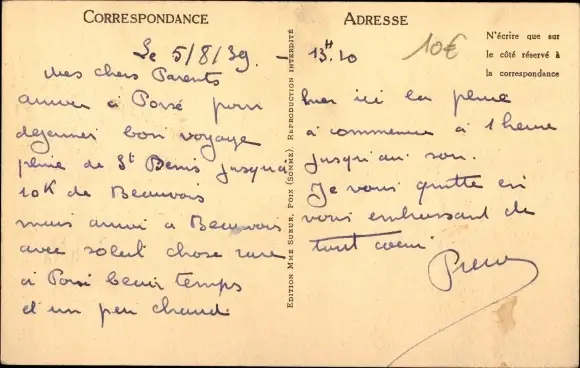 CORRESPONDANCE
Le 5/8/39. - 13H20
Mes chers Parents
arrivé à Poix pour
dejeuner bon voyage
pluie de St Denis jusqu'à
10K de Beauvais
mais arrivé à Beauvais
avec soleil chose rare
à Poix beau temps
et un peu chaud.
EDITION MME SUEUR, POIX (SOMME), REPRODUCTION INTERDITE
ADRESSE
10€
N'écrire que sur
le côté réservé à
la correspondance
hier ici la pluie
à commencé à 1 heure
jusqu'au soir.
Je vous quitte en
vous embrassant de
tout coeur